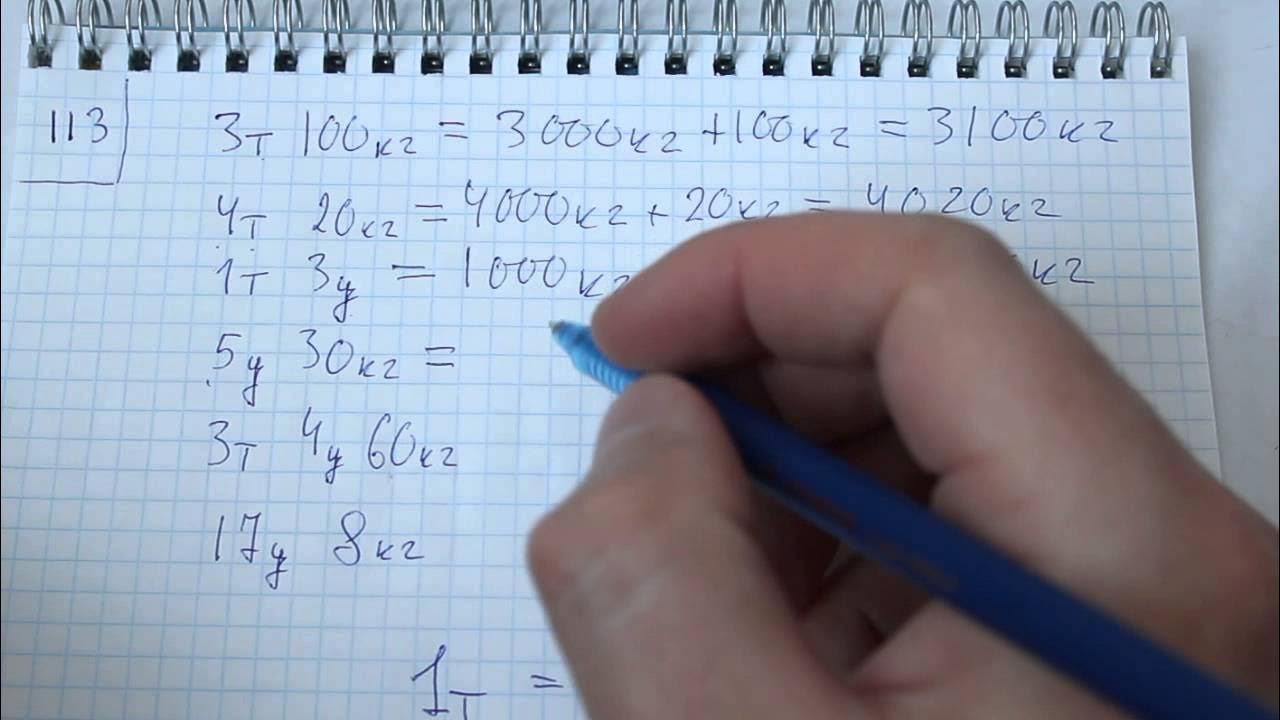 113
3т 100кг = 3000кг + 100кг = 3100кг
4т 20кг = 4000кг + 20кг = 4020кг
1т 3ц = 1000кг кг
5ц 30кг =
3т 4ц 60кг
17ц 8кг
1т =